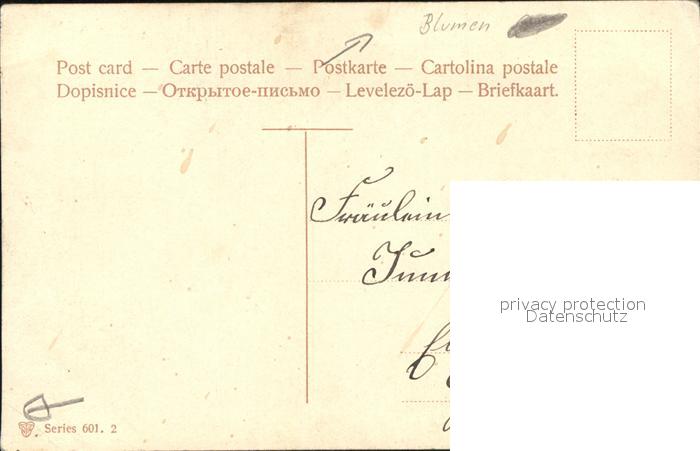 Blumen
Post card — Carte postale — Postkarte — Cartolina postale
Dopisnice — Открытое-письмо — Levelező-Lap — Briefkaart.
Fräulein
privacy protection
Datenschutz
Series 601. 2